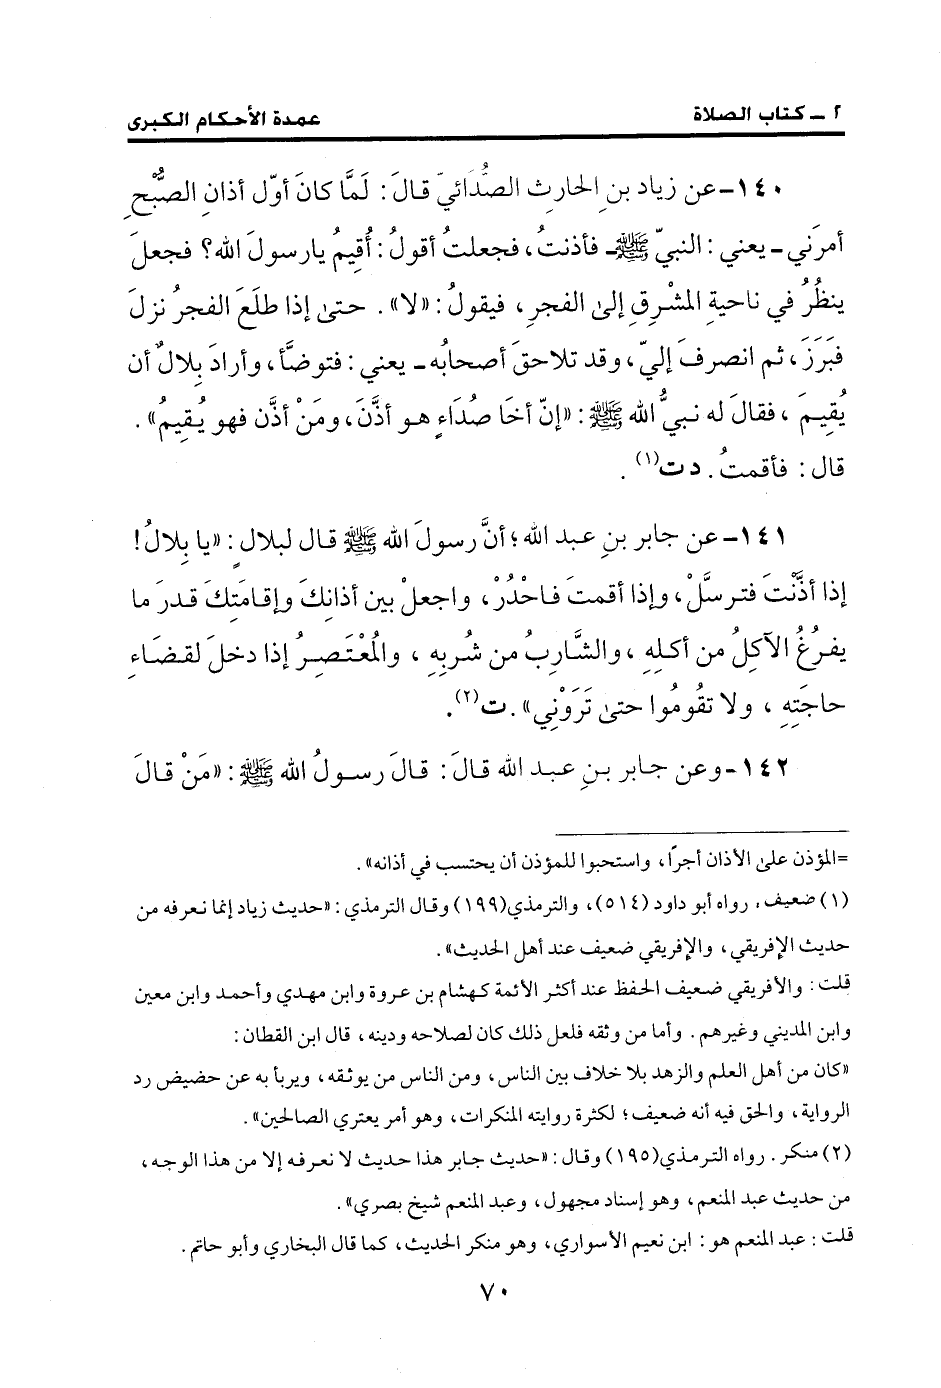 ٢ ــ كتاب الصلاة
عمدة الأحكام الكبرى
١٤٠ـ عن زياد بنِ الحارث الصُّدَائيّ قالَ: لَمَّا كانَ أوّل أذانِ الصُّبْحِ
أمرَني ـ يعني: النبيّ ﷺ ـ فأذنتُ، فجعلتُ أقولُ: أُقِيمُ يارسولَ الله؟ فجعلَ
ينظُرُ في ناحيةِ المشْرِقِ إلى الفجرِ، فيقولُ: «لا». حتى إذا طلَعَ الفجرُ نزلَ
فَبَرَزَ، ثم انصرفَ إليّ، وقد تلاحقَ أصحابُه ـ يعني: فتوضَّأ، وأرادَ بِلالٌ أن
يُقِيمَ، فقالَ له نبيُّ الله ﷺ: «إنّ أخَا صُدَاءٍ هو أذَّنَ، ومَنْ أذَّن فهو يُقِيمُ».
قال: فأقمتُ. د ت(١).
١٤١ـ عن جابر بنِ عبد الله؛ أنَّ رسولَ الله ﷺ قال لبلالٍ: «يا بِلالُ!
إذا أذَّنْتَ فترسَّلْ، وإذا أقمتَ فاحْدُرْ، واجعلْ بين أذانِكَ وإقامَتِكَ قدرَ ما
يفرُغُ الآكِلُ من أكلِهِ، والشَّارِبُ من شُربِهِ، والمُعْتَصِرُ إذا دخلَ لقضَاءِ
حاجَتِهِ، ولا تقُومُوا حتى تَرَوْنِي». ت(٢).
١٤٢ـ وعن جابر بـنِ عبـد الله قالَ: قالَ رسـولُ الله ﷺ: «مَنْ قالَ
=المؤذن على الأذان أجرًا، واستحبوا للمؤذن أن يحتسب في أذانه».
(١) ضعيف. رواه أبو داود (٥١٤)، والترمذي(١٩٩) وقال الترمذي: «حديث زياد إنما نعرفه من
حديث الإفريقي، والإفريقي ضعيف عند أهل الحديث».
قلت: والأفريقي ضعيف الحفظ عند أكثر الأئمة كهشام بن عروة وابن مهدي وأحمد وابن معين
وابن المديني وغيرهم. وأما من وثقه فلعل ذلك كان لصلاحه ودينه، قال ابن القطان:
«كان من أهل العلم والزهد بلا خلاف بين الناس، ومن الناس من يوثقه، ويربأ به عن حضيض رد
الرواية، والحق فيه أنه ضعيف؛ لكثرة روايته المنكرات، وهو أمر يعتري الصالحين».
(٢) منكر. رواه الترمذي(١٩٥) وقال: «حديث جابر هذا حديث لا نعرفه إلا من هذا الوجه،
من حديث عبد المنعم، وهو إسناد مجهول، وعبد المنعم شيخ بصري».
قلت: عبد المنعم هو: ابن نعيم الأسواري، وهو منكر الحديث، كما قال البخاري وأبو حاتم.
٧٠